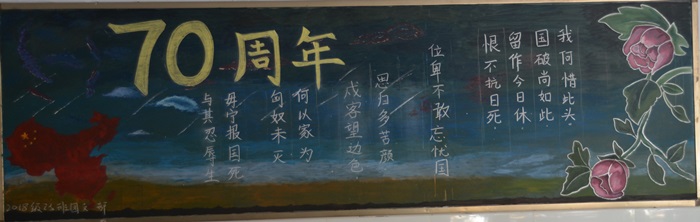 70周年
我何惜此头.
国破尚如此.
留作今日休.
恨不抗日死,
位卑不敢忘忧国
思归多苦颜
戍客望边色
何以家为
匈奴未灭
毋宁报国死
与其忍辱生
2018级